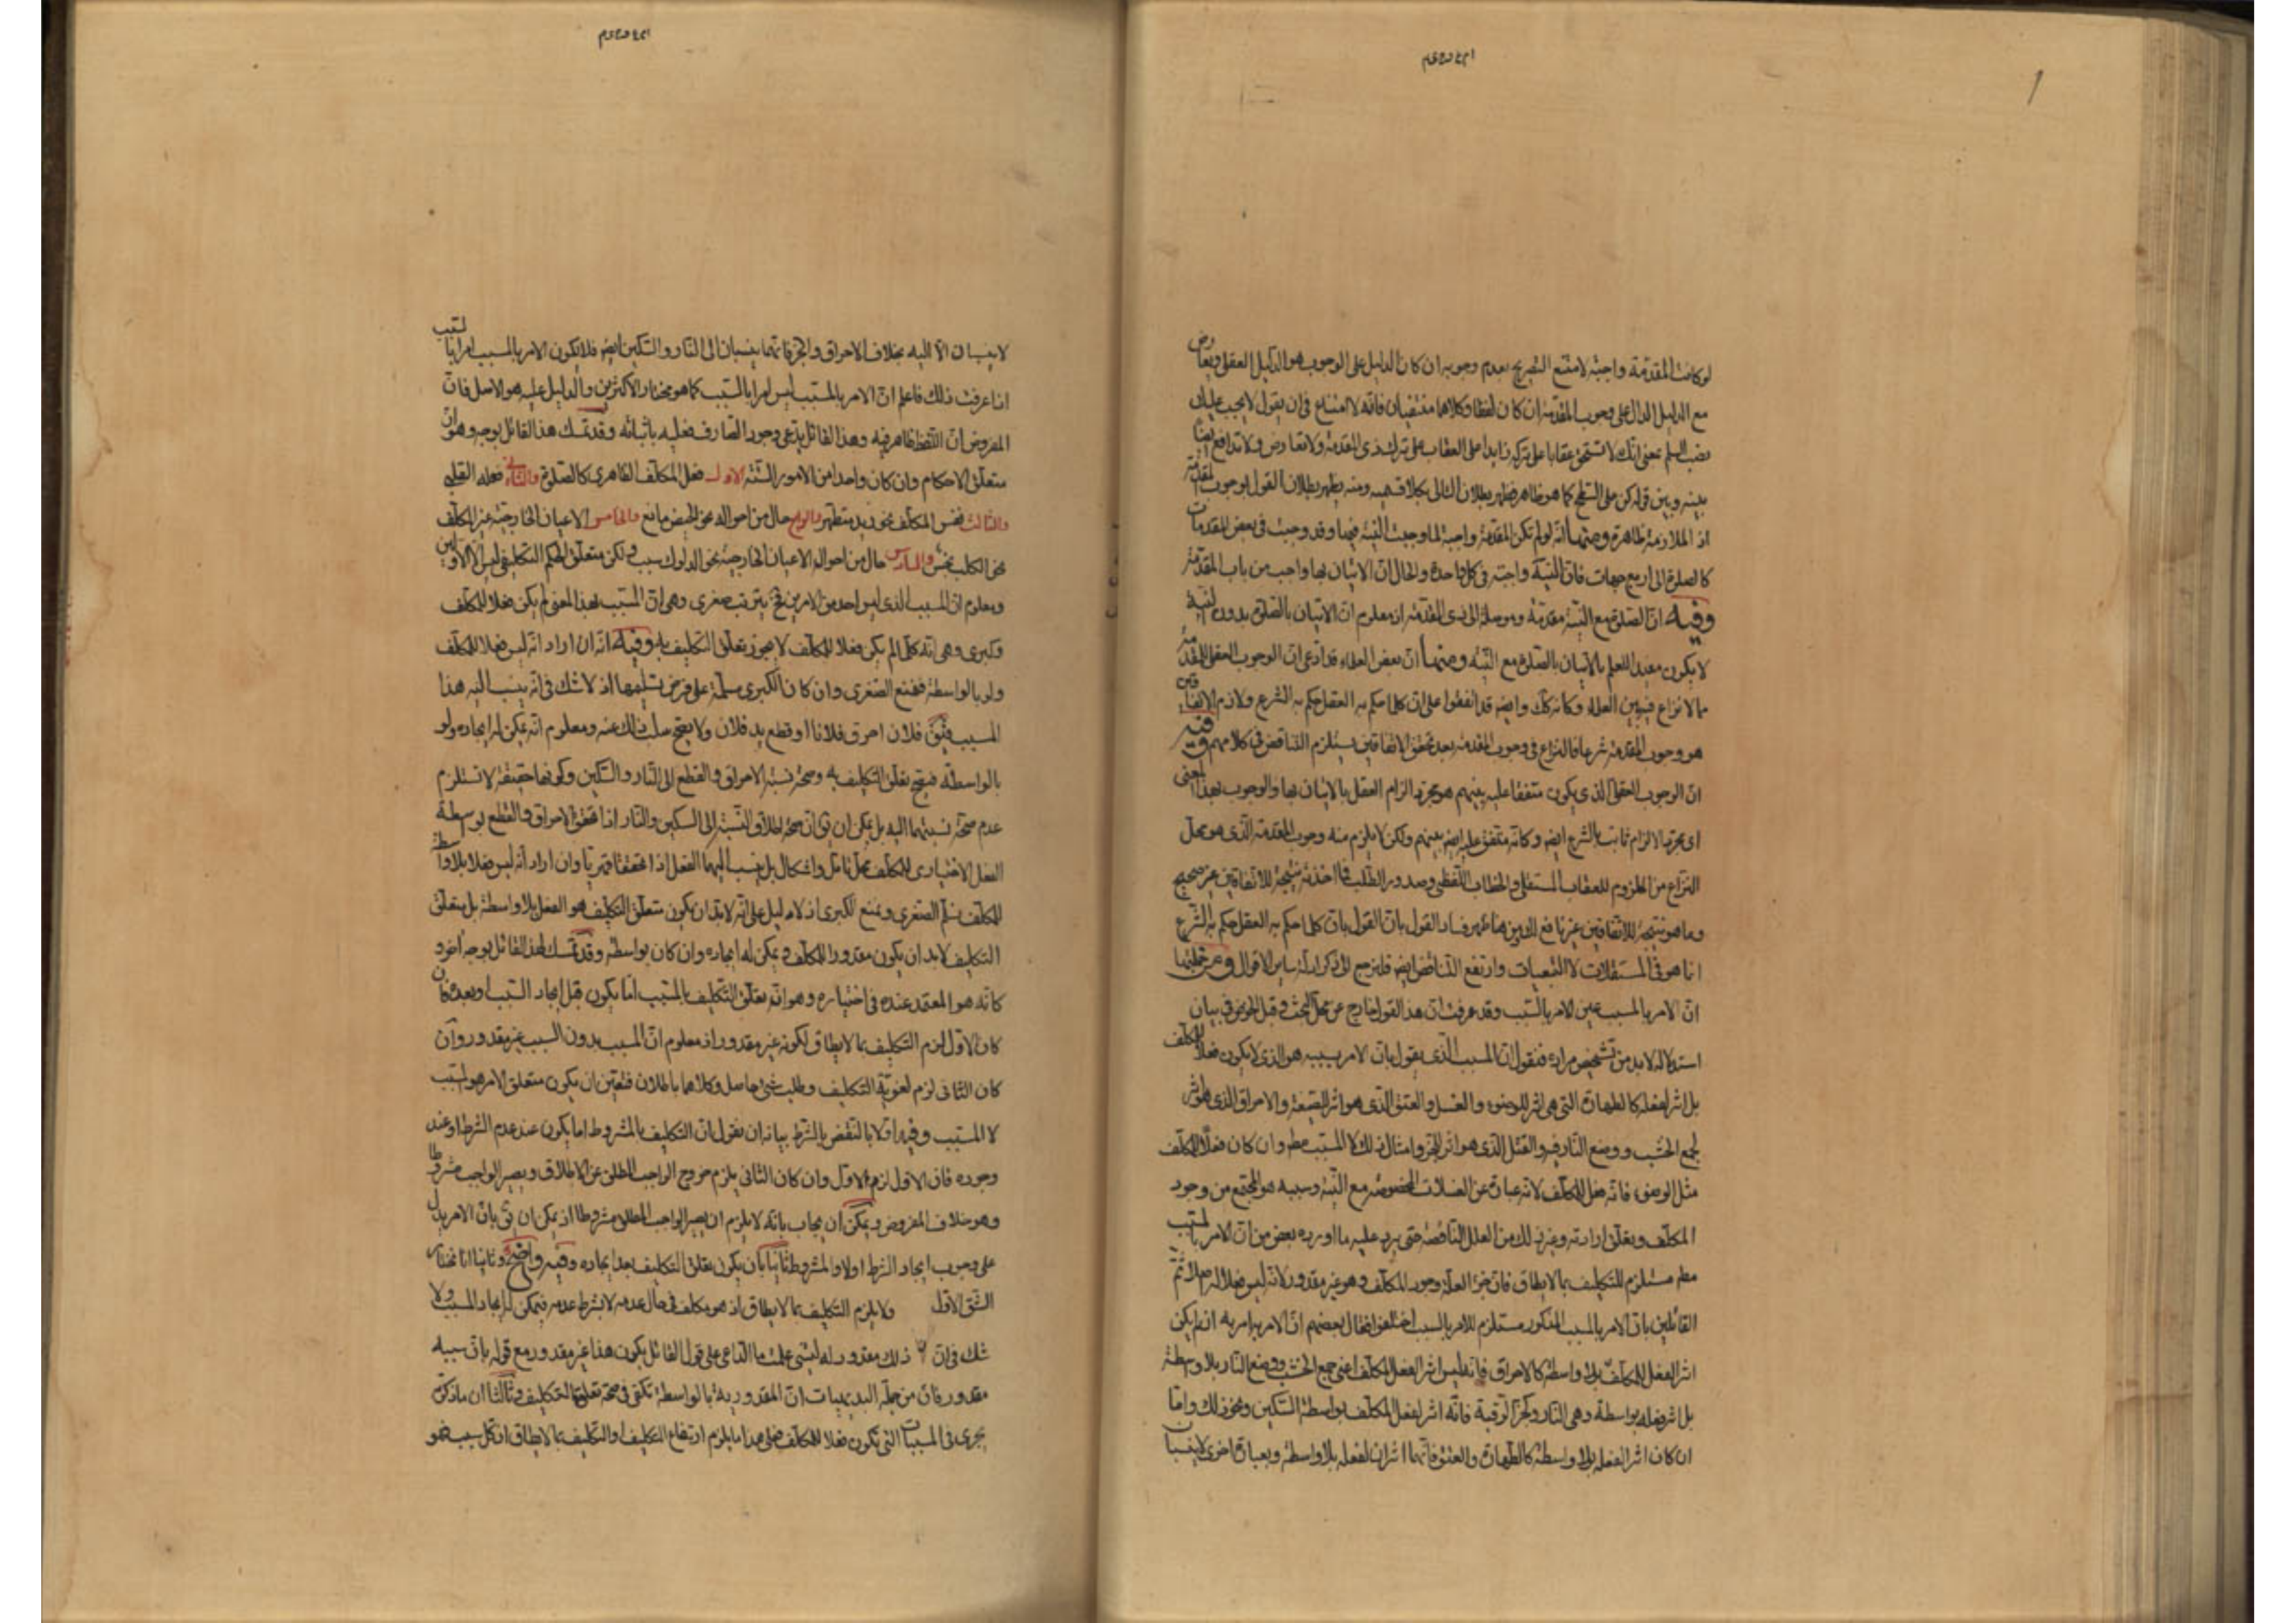 لوكانت المقدّمة واجبة لامتنع التصريح بعدم وجوبه ان كان الدليل على الوجوب هو الدليل العقلى ويعارض
مع الدليل الدال على وجوب المقدمة ان كان لفظا وكلاهما منتفيان فانه لا امتناع فى ان يقول لا يجب عليك
نصب السلم بمعنى انك لا تستحق عقابا على تركه زايدا على العقاب على ترك ذى المقدمة ولا تعارض ولا تدافع ايضا
بينه وبين قوله كن على السطح كما هو ظاهر فظهر بطلان التالى بكلا قسميه ومنه يظهر بطلان القول بوجوب المقدمة
اذ الملازمة ظاهرة ومنها انه لو لم تكن المقدمة واجبة لما وجبت النية فيها وقد وجبت فى بعض المقدمات
كالصلوة الى اربع جهات فان النية واجبة فى كل واحدة والحال ان الاتيان بها واجب من باب المقدمة
وفيه ان الصلوة مع النية مقدمة وموصلة الى ذى المقدمة اذ معلوم ان الاتيان بالصلوة بدون النية
لا يكون مفيدا للعلم بالاتيان بالصلوة مع النية ومنها ان بعض العلماء قد ادعى ان الوجوب العقلى للمقدمة
مما لا نزاع فيه بين العلماء وكانه كك وايضه قد اتفقوا على ان كلما حكم به العقل حكم به الشرع ولازم الاتفاقين
هو وجوب المقدمة شرعا فالنزاع فى وجوب المقدمة بعد تحقق الاتفاقين يستلزم التناقض فى كلامهم وفيه
ان الوجوب العقلى الذى يكون متفقا عليه بينهم هو مجرد الزام العقل بالاتيان بها والوجوب بهذا المعنى
اى مجرد الالزام ثابت بالشرع ايضه وكانه متفق عليه ايضه بينهم ولكن لا يلزم منه وجوب المقدمة الذى هو محل
النزاع من الملزوم للعقاب المستقل والخطاب اللفظى وصدور الطلب فما اخذته نتيجة للاتفاقين غير صحيح
وما هو نتيجة للاتفاقين غير نافع لك ومن هنا ظهر فساد القول بان القول بان كلما حكم به العقل حكم به الشرع
انما هو فى المستقلات لا التبعيات وارتفع التناقض ايضه فلنرجع الى ذكر ادلة ساير الاقوال ومن جملتها
ان الامر بالمسبب عين الامر بالسبب وقد عرفت ان هذا القول خارج عن محل البحث وقبل الخوض فى بيان
استدلاله لابد من تشخيص مراده فنقول ان المسبب الذى يقول بان الامر بسببه هو الذى لا يكون فعلا للمكلف
بل اثر لفعله كالطهارة التى هى اثر للوضوء والغسل والعتق الذى هو اثر للصيغة والاحراق الذى هو اثر
لجمع الحشب ووضع النار فيه والقتل الذى هو اثر للحز وامثال ذلك لا المسبب مط وان كان فعلا للمكلف
مثل الوضوء فانه فعل للمكلف لانه عبارة عن الغسلات المخصوصة مع النية وسببه هو المجتمع من وجود
المكلف وتعلق ارادته وغير ذلك من العلل الناقصة حتى يرد عليه ما اورده بعض من ان الامر بالسبب
مط مستلزم للتكليف بما لا يطاق فان جزء العلة وجود المكلف وهو غير مقدور لانه ليس فعلا له اصلا ثم
القائلين بان الامر بالمسبب المذكور مستلزم للامر بالسبب اختلفوا فقال بعضهم ان الامر به امر به ان لم يكن
اثر الفعل للمكلف بلا واسطة كالاحراق فانه ليس اثر الفعل المكلف اعنى جمع الحشب ووضع النار بلا واسطة
بل اثر فعله بواسطة وهى النار وكحز الرقبة فانه اثر لفعل المكلف بواسطة السكين ونحو ذلك واما
ان كان اثر الفعله بلا واسطة كالطهارة والعتق فانهما اثران لفعله بلا واسطة وبعبارة اخرى لا ينسبان
لا ينسبان الا اليه بخلاف الاحراق والحز فانهما ينسبان الى النار والسكين ايضه فلا يكون الامر بالمسبب امرا بالسبب
اذا عرفت ذلك فاعلم ان الامر بالمسبب ليس امرا بالسبب كما هو مختار الاكثرين والدليل عليه هو الاصل فان
المفروض ان اللفظ ظاهر فيه وهذا القائل يدعى وجود الصارف فعليه باثباته وقد تمسك هذا القائل بوجوه وهو ان
متعلق الاحكام وان كان واحدا من الامور الستة الاول فعل المكلف الظاهرى كالصلوة والثانى فعله القلبى
والثالث نفس المكلف نحو زيد متطهر والرابع حال من احواله نحو الحيض مانع والخامس الاعيان الخارجية غير المكلف
نحو الكلب نجس والسادس حال من احوال الاعيان الخارجية نحو الدلوك سبب ولكن متعلق الحكم التكليفى ليس الا الاولين
ومعلوم ان المسبب الذى ليس احد من الامرين فح يترتب صغرى وهى ان المسبب بهذا المعنى لم يكن فعلا للمكلف
وكبرى وهى انه كل ما لم يكن فعلا للمكلف لا يجوز تعلق التكليف به وفيه انه ان اراد انه ليس فعلا للمكلف
ولو بالواسطة فنمنع الصغرى وان كان الكبرى مسلمة على فرض تسليمها اذ لا شك فى انه ينسب اليه هذا
المسبب فيق فلان احرق فلانا او قطع يد فلان ولا يصح سلب ذلك عنه ومعلوم انه يمكن له ايجاده ولو
بالواسطة فيصح تعلق التكليف به وصحة نسبة الاحراق والقطع الى النار والسكين وكونها حقيقة لا تستلزم
عدم صحة نسبتهما اليه بل يمكن ان يق ان صحة اطلاق النسبة الى السكين والنار اذا تحقق الاحراق والقطع بواسطة
الفعل الاختيارى للمكلف محل تامل واشكال بل ينسب اليهما الفعل اذا تحققا قهريا وان اراد انه ليس فعلا بلا واسطة
للمكلف نسلم الصغرى ونمنع الكبرى اذ لا دليل على انه لابد ان يكون متعلق التكليف هو الفعل بلا واسطة بل متعلق
التكليف لابد ان يكون مقدورا للمكلف ويمكن له ايجاده وان كان بواسطة وقد تمسك لهذا القائل بوجه اخر و
كانه هو المعتمد عنده فى اختياره وهو انه تعلق التكليف بالمسبب اما يكون قبل ايجاد السبب او بعده فان
كان الاول لزم التكليف بما لا يطاق لكونه غير مقدور اذ معلوم ان المسبب بدون السبب غير مقدور وان
كان الثانى لزم لغوية التكليف وطلب شئ حاصل وكلاهما باطلان فتعين ان يكون متعلق الامر هو السبب
لا المسبب وفيه اولا بالنقض بالشرط بيانه ان نقول ان التكليف بالمشروط اما يكون عند عدم الشرط او عند
وجوده فان الاول لزم الاول وان كان الثانى يلزم خروج الواجب المطلق عن الاطلاق ويصير الواجب مشروطا
وهو خلاف المفروض ويمكن ان يجاب بانه لا يلزم ان يصير الواجب المطلق مشروطا اذ يمكن ان يق بان الامر يدل
على وجوب ايجاد الشرط اولا والمشروط ثانيا بان يكون تعلق التكليف بعد ايجاده وفيه واضح وثانيا انا نختار
الشق الاول ولا يلزم التكليف بما لا يطاق اذ هو مكلف فى حال عدمه لا بشرط عدمه فيمكن له ايجاد المسبب ولا
شك فى ان ذلك مقدور له ليت شعرى علمت ما الداعى على قول القائل بكون هذا غير مقدور مع قوله بان سببه
مقدور فان من جملة البديهيات ان المقدورية بالواسطة تكفى فى صحة تعلق التكليف وثالثا ان ما ذكرته
يجرى فى المسببات التى تكون فعلا للمكلف فعلى هذا يلزم ارتفاع التكليف او التكليف بما لا يطاق اذ كل سبب هو